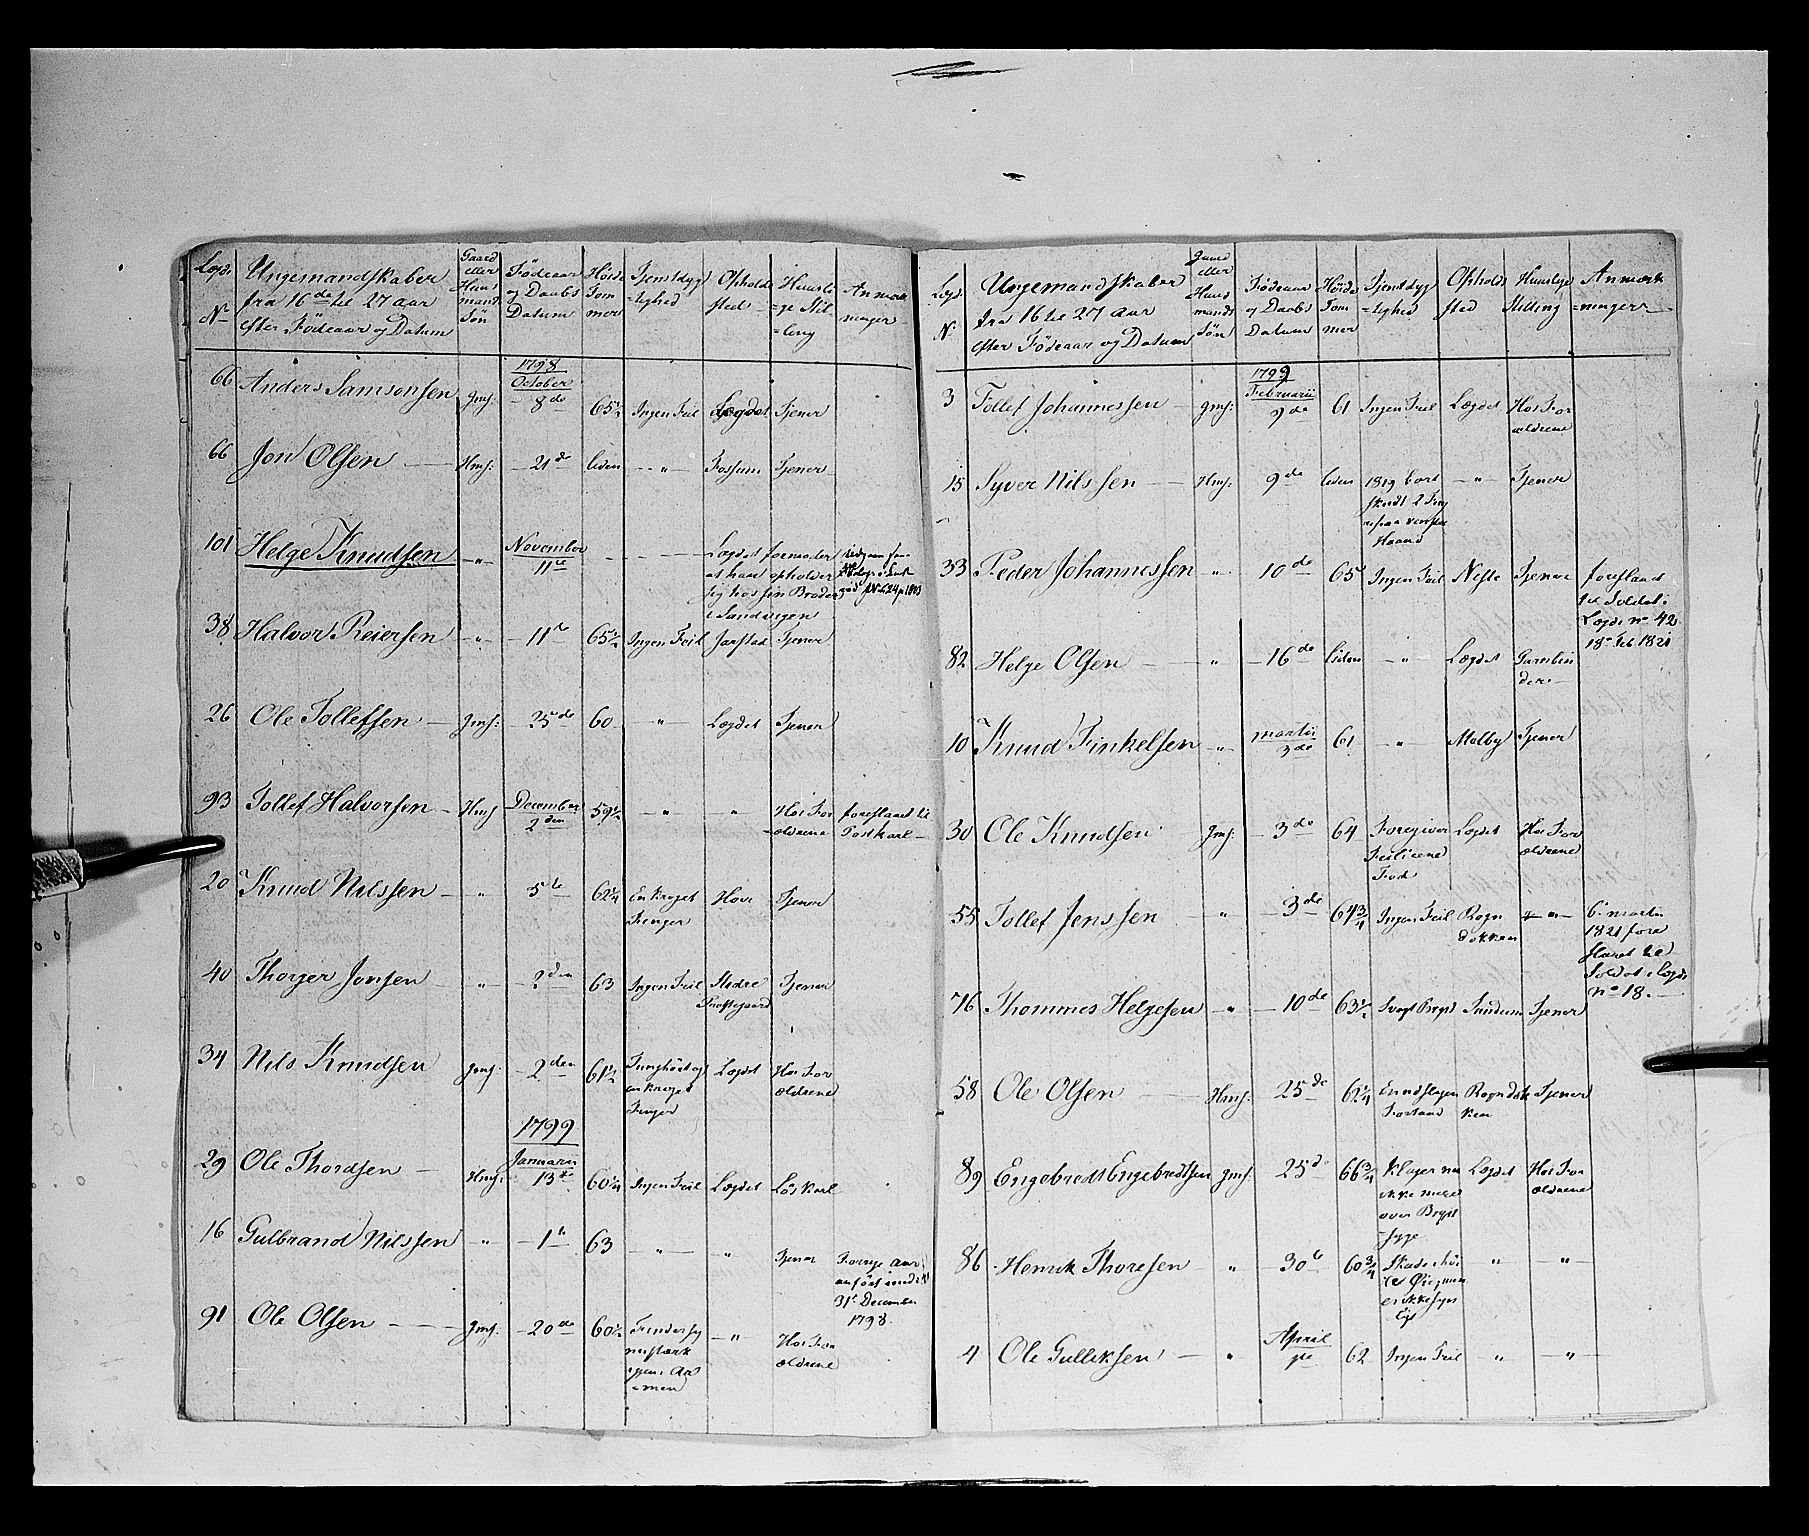 Lægds N° | Ungemandskaber fra 16 de til 27 aar efter Födeaar og Datum | Gaard eller Huusmands Sön | Födeaar og Daabs Datum | Höide Tommer | Tjenstdyg=tighed | Opholds sted | Huuslige Stilling | Anmærkninger
1798
October
66 Anders Samsonsen gmf: 8de 65½ Ingen Feil Lægdet Tjener
66 Jon Olsen Hmf: 21de liden " Fossum Tjener
November
101 Helge Knudsen " 11te Lægdet formoder at have opholder sig hos sin Broder i Sandvigen
38 Halvor Reiersen " 11te 65½ Ingen Feil Jarstad Tjener
26 Ole Tollefsen gmf: 25de 60 " Lægdet Tjener
December
93 Tollef Halvorsen Hmf 2den 59½ " " Hos Forældrene foreslaaet til Postkarl
20 Knud Nilssen " 5te 62¼ En kroget Finger Hove Tjener
40 Thorger Jonsen " 2den 63 Ingen Feil Nedre Tjener
34 Nils Knudsen gmf: 2den 61½ Tunghört og en kroget Finger Lægdet Hos Forældrene
1799
Januarii
29 Ole Thordsen Hmf: 13de 60¼ Ingen Feil Lægdet Löskarl
16 Gulbrand Nilssen " 1te 63 " " Tjener Forrige Aar anfört inder 31te December 1798.
91 Ole Olsen gmf. 20de 60½ " Hos Forældrene
Lægds N° | Ungemandskaber fra 16 til 27 aar efter Födeaar og Datum | gaard eller Huusmands Sön | Födeaar og Daabs Datum | Höide Tommer | Tjenstdyg=tighed | Opholds sted | Huuslige Stilling | Anmærk=ninger
1799
Februarii
3 Tollef Johannessen gmf: 9de 61 Ingen Feil Lægdet Hos Forældrene
15 Syver Nilssen Hmf: 9de liden 1819 bort skudt 2 Fing paa venstre Haand " Tjener
33 Peder Johannessen " 10de 65 Ingen Feil Neste Tjener foreslaaet til Soldat i Lægds n° 42 18de Feb 1821
82 Helge Olsen " 16de liden " Lægdet Garnbinder
Martii
10 Knud Finkelsen " 3de 61 " Melby Tjener
30 Ole Knudsen gmf: 3de 64 Foregiver Feil i eene Fod Lægdet Hos Forældrene
55 Tollef Jenssen " 3de 64¾ Ingen Feil Rogndokken " 6te martii 1821 foreslaaet til Soldat i Lægds n° 18.
76 Thommes Helgesen " 10de 63½ Svagt Bryst Sundum Tjener
58 Ole Olsen Hmf: 25de 62¼ Rogndokken Tjener
89 Engebredt Engebredtsen gmf: 25de 66¾ klager nu ikke mere over Brystsyge Lægdet Hos Forældrene
86 Henrik Thoresen " 30te 60¾ " "
April
4 Ole Gulliksen " 62 Ingen Feil " "